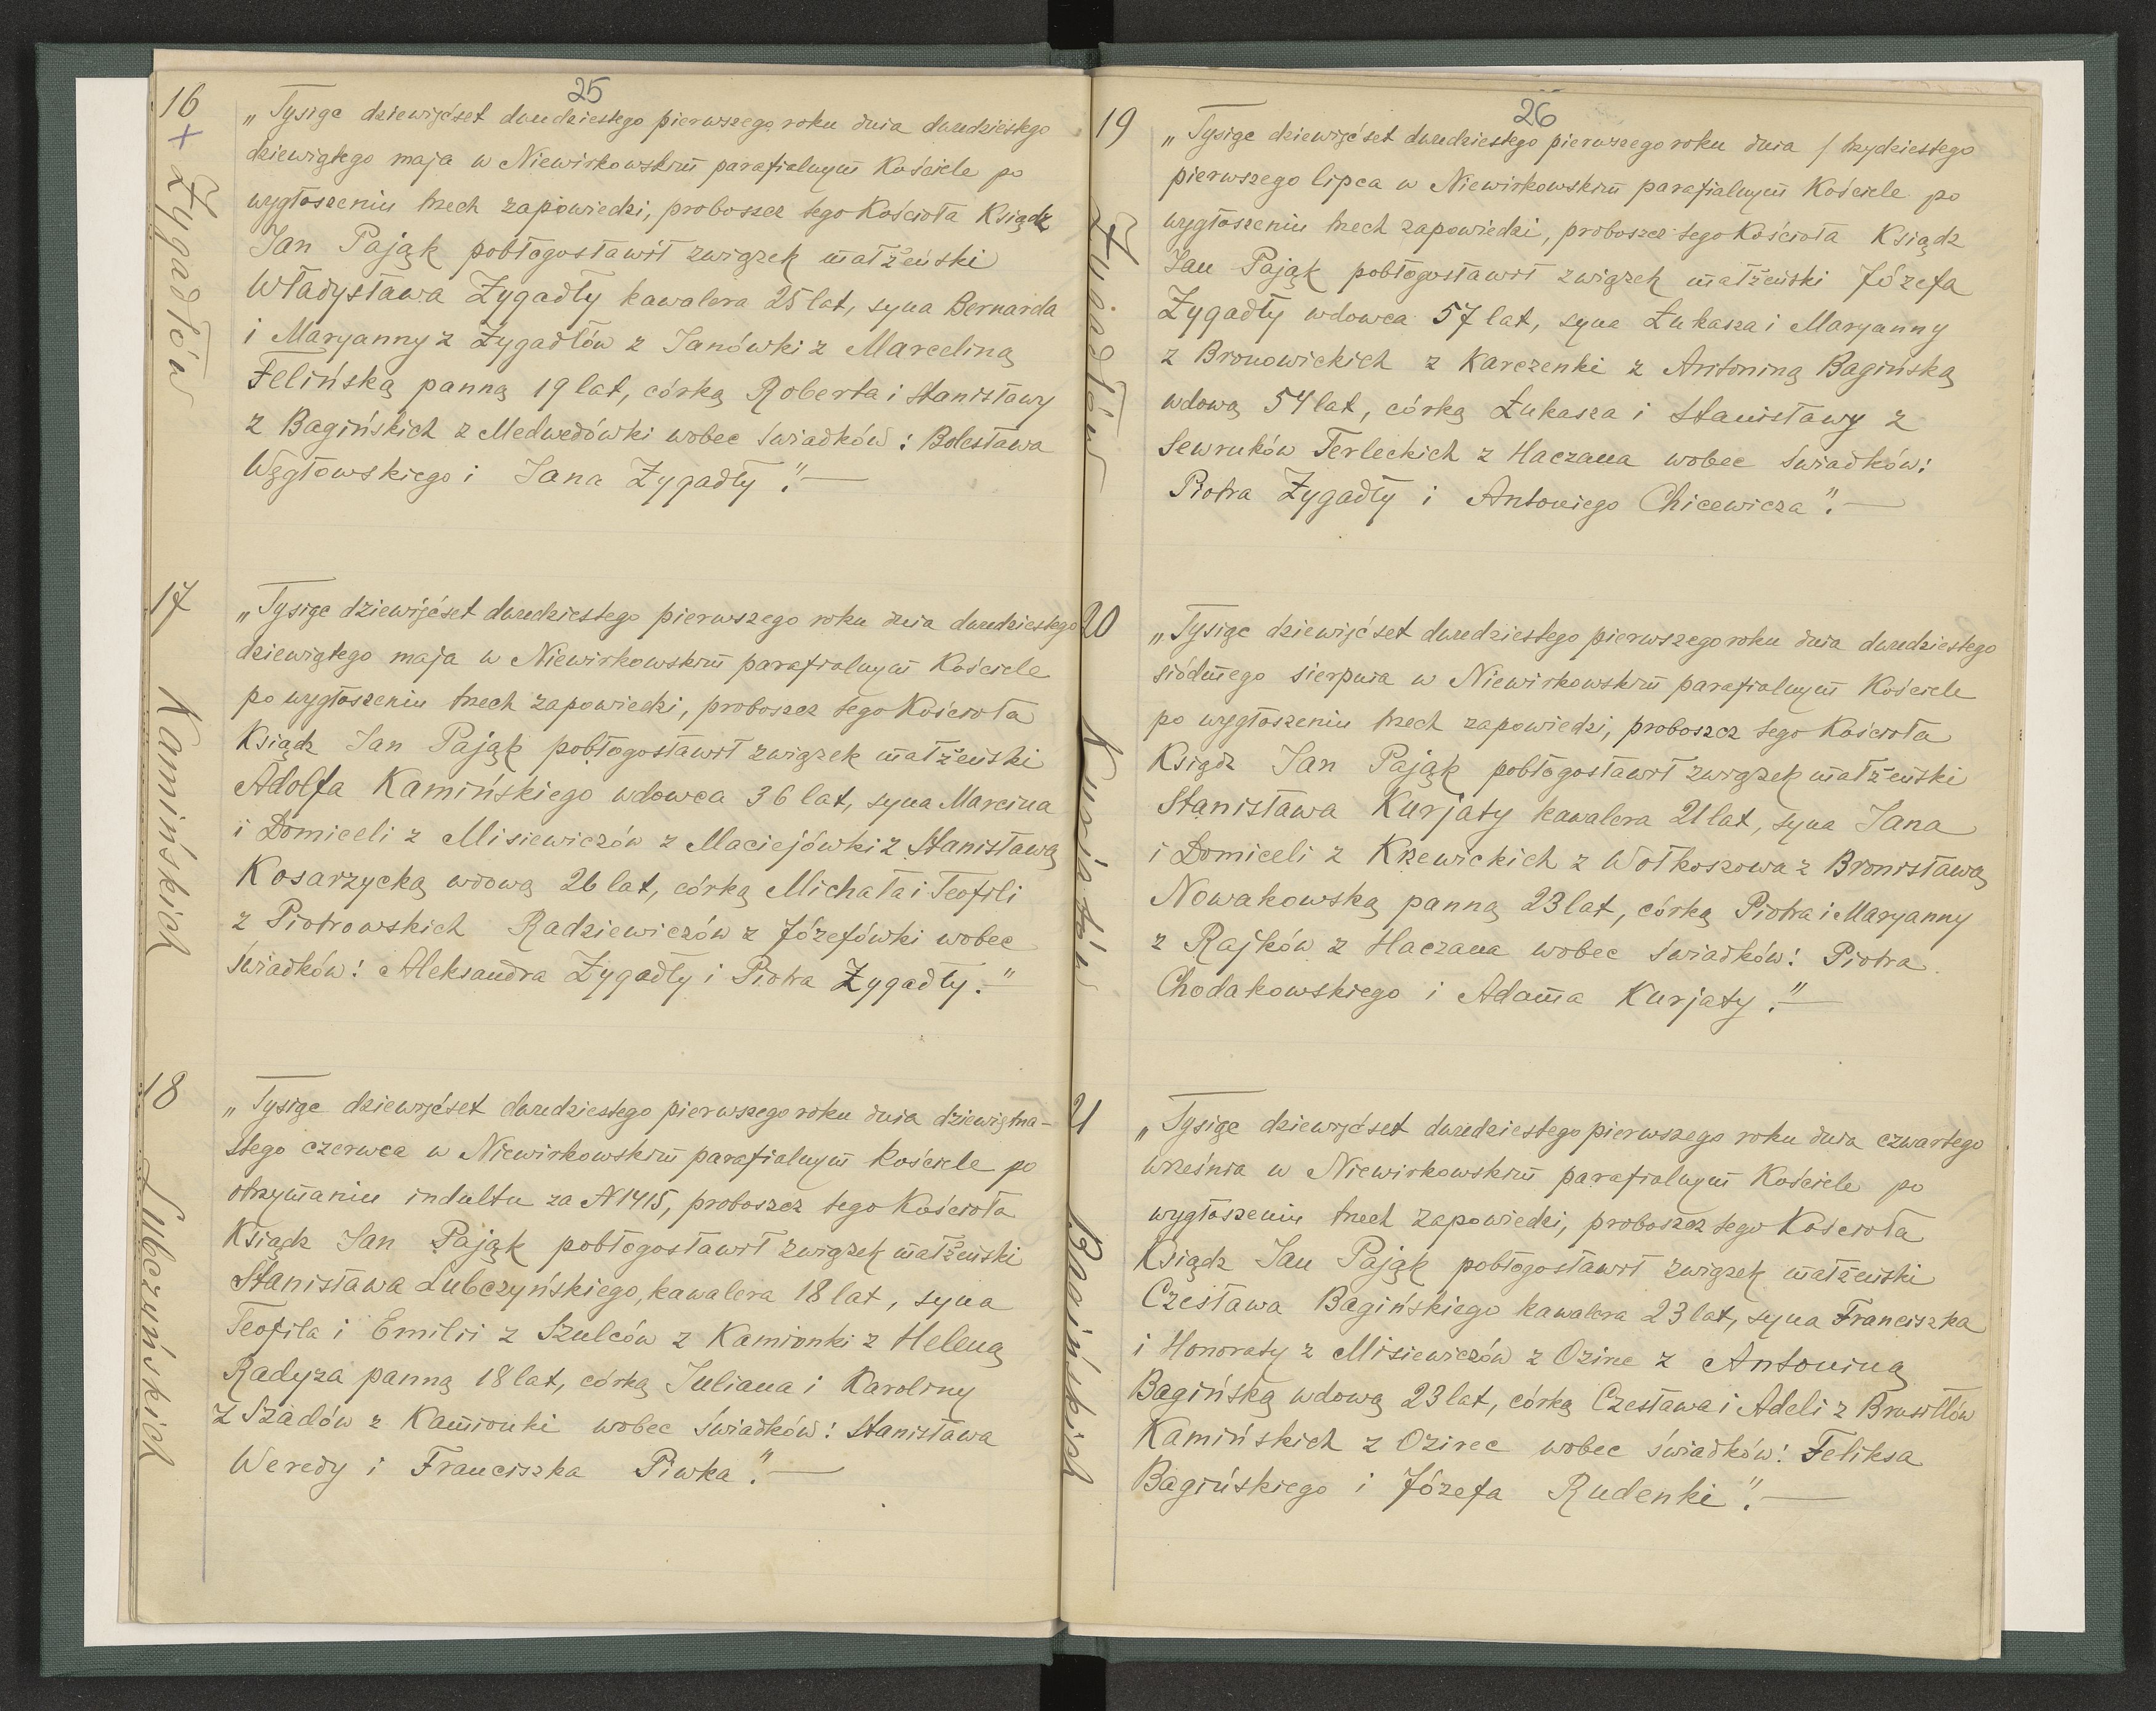 25
16
+
Zygadłów
„Tysiąc dziewięćset dwudziestego pierwszego roku dnia dwudziestego
dziewiątego maja w Niewirkowskim parafialnym Kościele po
wygłoszeniu trzech zapowiedzi, proboszcz tego Kościoła Ksiądz
Jan Pająk pobłogosławił związek małżeński
Władysława Zygadły kawalera 25 lat, syna Bernarda
i Maryanny z Zygadłów z Janówki z Marceliną
Felińską panną 19 lat, córką Roberta i Stanisławy
z Bagińskich z Medwedówki wobec świadków: Bolesława
Węgłowskiego i Jana Zygadły”.—
17
Kamińskich
„Tysiąc dziewięćset dwudziestego pierwszego roku dnia dwudziestego
dziewiątego maja w Niewirkowskim parafialnym Kościele
po wygłoszeniu trzech zapowiedzi, proboszcz tego Kościoła
Ksiądz Jan Pająk pobłogosławił związek małżeński
Adolfa Kamińskiego wdowca 36 lat, syna Marcina
i Domiceli z Misiewiczów z Maciejówki z Stanisławą
Kosarzycką wdową 26 lat, córką Michała i Teofili
z Piotrowskich Radziewiczów z Józefówki wobec
świadków: Aleksandra Zygadły i Piotra Zygadły.”—
18
Lubczyńskich
„Tysiąc dziewięćset dwudziestego pierwszego roku dnia dziewiętna-
stego czerwca w Niewirkowskim parafialnym kościele po
otrzymaniu indultu za N 1415, proboszcz tego Kościoła
Ksiądz Jan Pająk pobłogosławił związek małżeński
Stanisława Lubczyńskiego, kawalera 18 lat, syna
Teofila i Emilii z Szulców z Kamionki z Heleną
Radyza panną 18 lat, córką Juliana i Karoliny
z Szadów z Kamionki wobec świadków: Stanisława
Weredy i Franciszka Piwka”.—
26
19
Zygadłów
„Tysiąc dziewięćset dwudziestego pierwszego roku dnia / trzydziestego
pierwszego lipca w Niewirkowskim parafialnym Kościele po
wygłoszeniu trzech zapowiedzi, proboszcz tego Kościoła Ksiądz
Jan Pająk pobłogosławił związek małżeński Józefa
Zygadły wdowca 57 lat, syna Łukasza i Maryanny
z Bronowickich z Karczenki z Antoniną Bagińską
wdową 54 lat, córką Łukasza i Stanisławy z
Sewruków Terleckich z Haczana wobec świadków:
Piotra Zygadły i Antoniego Chicewicza”.—
20
Kurjatów
„Tysiąc dziewięćset dwudziestego pierwszego roku dnia dwudziestego
siódmego sierpnia w Niewirkowskim parafialnym Kościele
po wygłoszeniu trzech zapowiedzi, proboszcz tego Kościoła
Ksiądz Jan Pająk pobłogosławił związek małżeński
Stanisława Kurjaty kawalera 21 lat, syna Jana
i Domiceli z Krzewickich z Wołkoszowa z Bronisławą
Nowakowską panną 23 lat, córką Piotra i Maryanny
z Rajków z Haczana wobec świadków: Piotra
Chodakowskiego i Adama Kurjaty.”—
21
Bagińskich
„Tysiąc dziewięćset dwudziestego pierwszego roku dnia czwartego
września w Niewirkowskim parafialnym Kościele po
wygłoszeniu trzech zapowiedzi, proboszcz tego Kościoła
Ksiądz Jan Pająk pobłogosławił związek małżeński
Czesława Bagińskiego kawalera 23 lat, syna Franciszka
i Honoraty z Misiewiczów z Ozirec z Antoniną
Bagińską wdową 23 lat, córką Czesława i Adeli z Brusiłłów
Kamińskich z Ozirec wobec świadków: Feliksa
Bagińskiego i Józefa Rudenki”.—